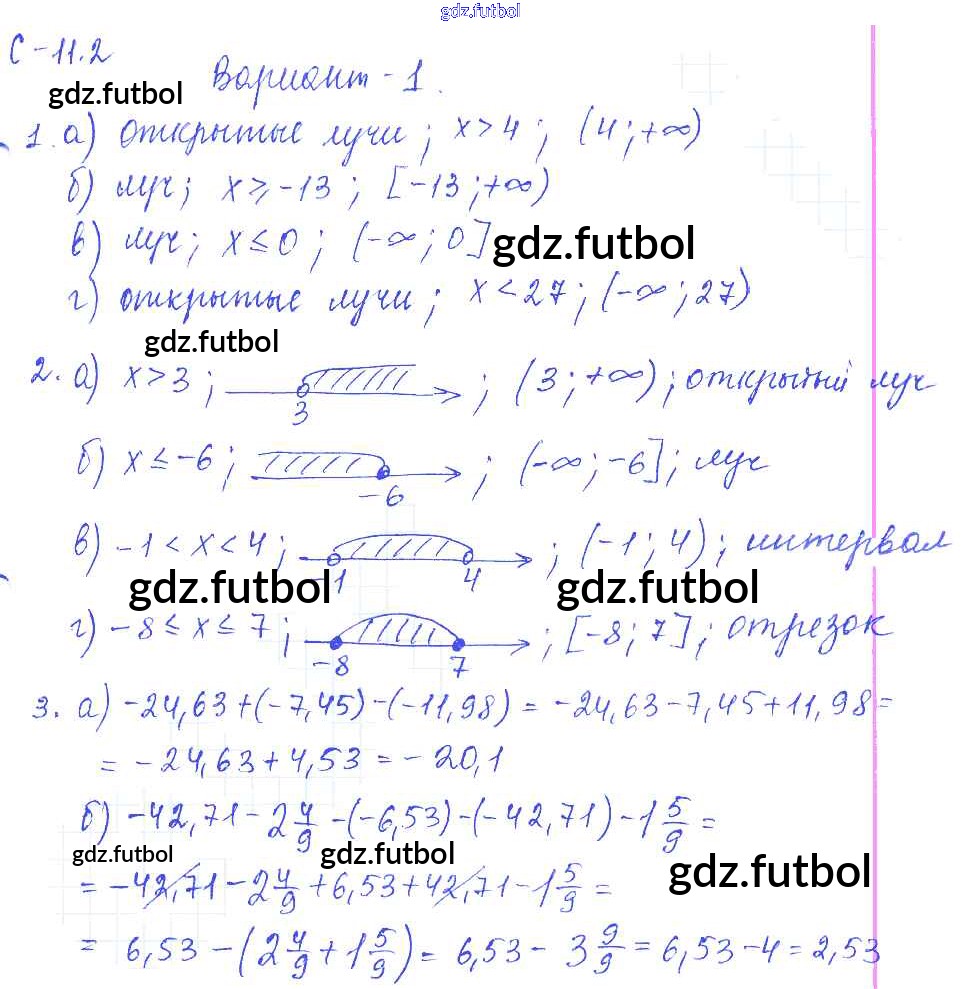 gdz.futbol
С-11.2
gdz.futbol
Вариант-1.
1. а) открытые лучи; x>4; (4;+∞)
б) луч; x≥-13; [-13;+∞)
в) луч; x≤0; (-∞;0]
gdz.futbol
г) открытые лучи; x<27; (-∞;27)
gdz.futbol
2. а) x>3; 3; (3;+∞); открытый луч
б) x≤-6; -6; (-∞;-6]; луч
в) -1<x<4; -1 4; (-1;4); интервал
gdz.futbol gdz.futbol
г) -8≤x≤7; -8 7; [-8;7]; отрезок
3. а) -24,63+(-7,45)-(-11,98)=-24,63-7,45+11,98=
=-24,63+4,53=-20,1
б) -42,71-2 4/9-(-6,53)-(-42,71)-1 5/9=
gdz.futbol gdz.futbol gdz.futbol
=-42,71-2 4/9+6,53+42,71-1 5/9=
=6,53-(2 4/9+1 5/9)=6,53-3 9/9=6,53-4=2,53